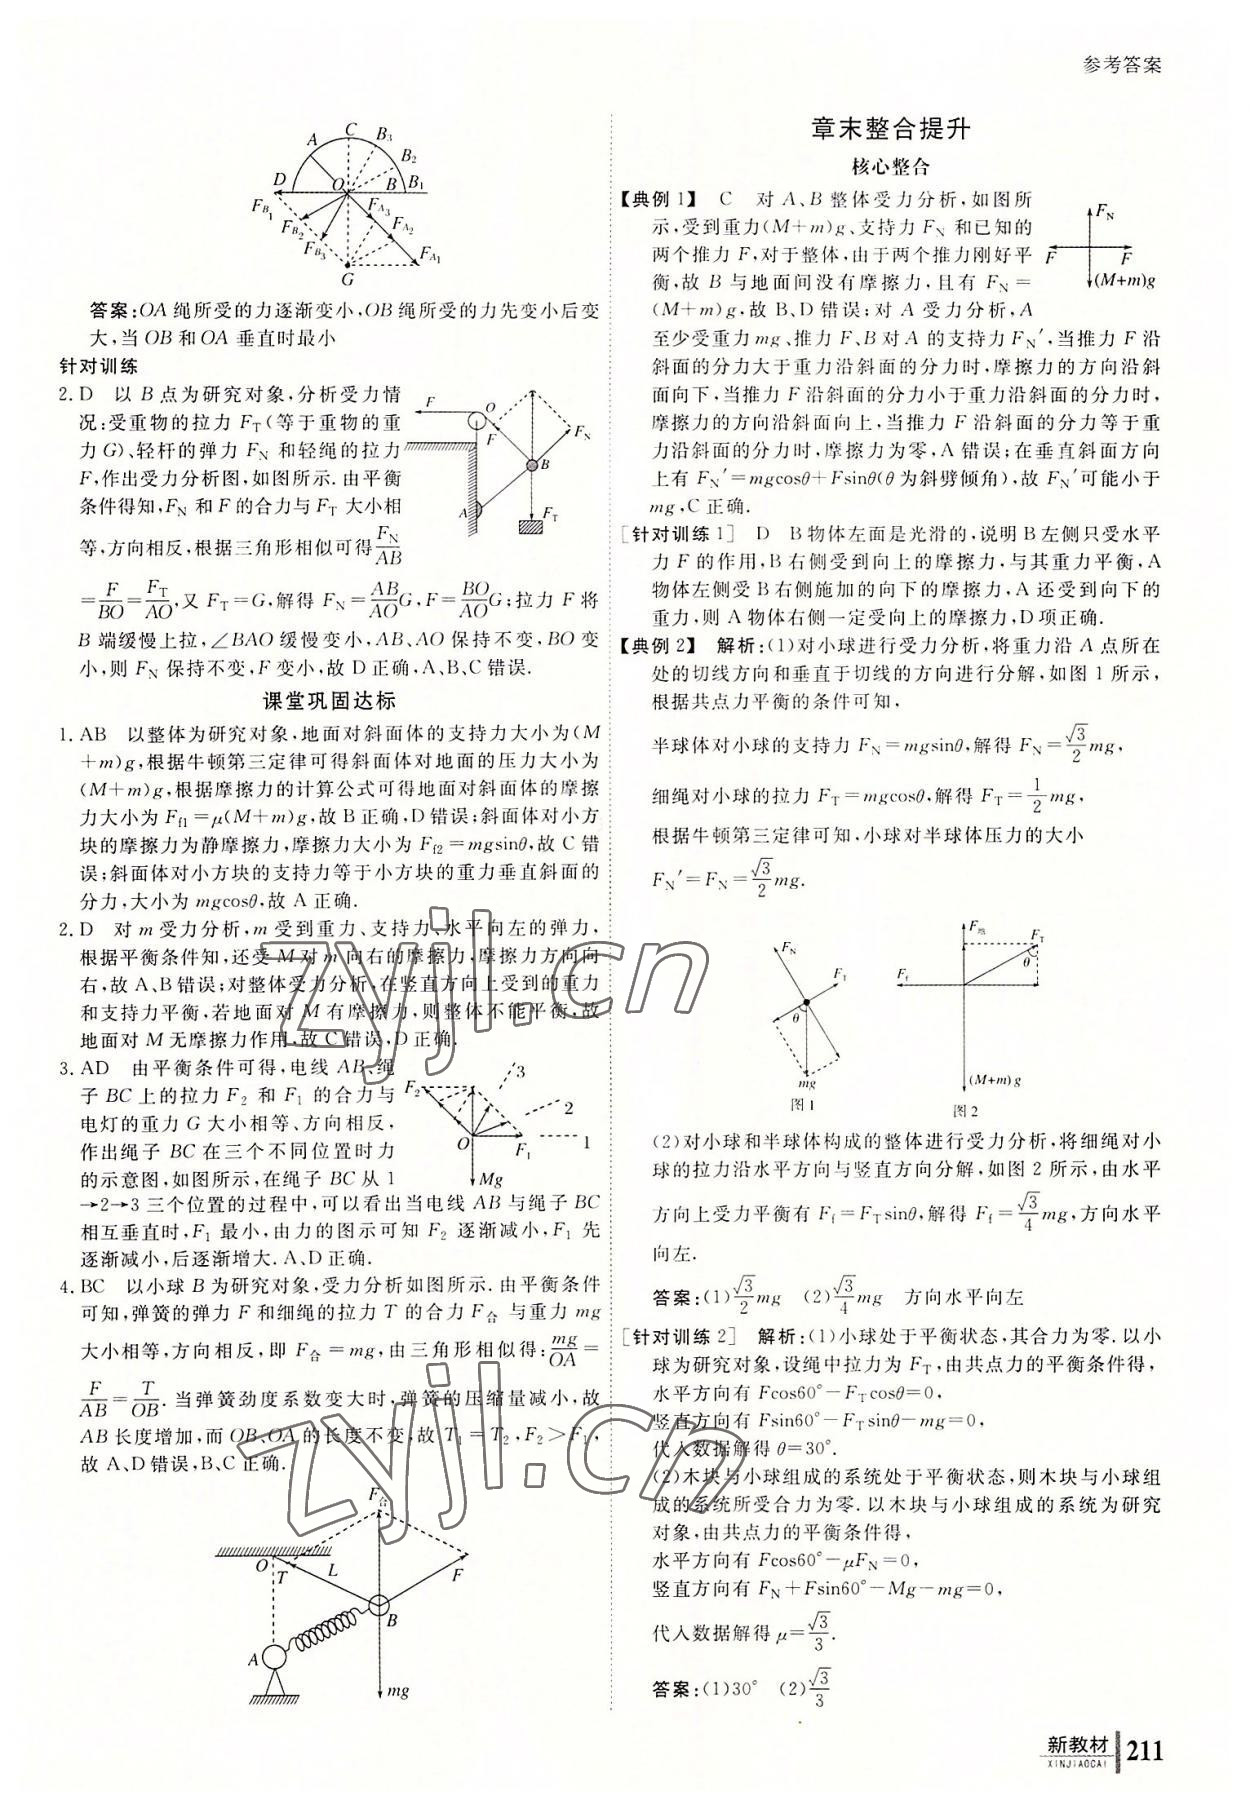 参考答案
C
A
B₃
B₂
D
O
B
B₁
F_B₁
F_B₂
F_B₃
F_A₃
F_A₂
F_A₁
G
答案:OA绳所受的力逐渐变小,OB绳所受的力先变小后变
大,当 OB 和 OA 垂直时最小
针对训练
2. D 以 B 点为研究对象,分析受力情
况:受重物的拉力 F_T(等于重物的重
力 G)、轻杆的弹力 F_N 和轻绳的拉力
F,作出受力分析图,如图所示. 由平衡
条件得知,F_N 和 F 的合力与 F_T 大小相
等,方向相反,根据三角形相似可得F_N/AB
=F/BO=F_T/AO,又 F_T=G,解得 F_N=AB/AO G,F=BO/AO G;拉力 F 将
B 端缓慢上拉,∠BAO 缓慢变小,AB、AO 保持不变,BO 变
小,则 F_N 保持不变,F 变小,故 D 正确,A、B、C 错误.
F
O
F
F_N
B
A
F_T
课堂巩固达标
1. AB 以整体为研究对象,地面对斜面体的支持力大小为(M
+m)g,根据牛顿第三定律可得斜面体对地面的压力大小为
(M+m)g,根据摩擦力的计算公式可得地面对斜面体的摩擦
力大小为 F_f1=μ(M+m)g,故 B 正确,D 错误;斜面体对小方
块的摩擦力为静摩擦力,摩擦力大小为 F_f2=mgsinθ,故 C 错
误;斜面体对小方块的支持力等于小方块的重力垂直斜面的
分力,大小为 mgcosθ,故 A 正确.
2. D 对 m 受力分析,m 受到重力、支持力、水平向左的弹力,
根据平衡条件知,还受 M 对 m 向右的摩擦力,摩擦力方向向
右,故 A、B 错误;对整体受力分析,在竖直方向上受到的重力
和支持力平衡,若地面对 M 有摩擦力,则整体不能平衡,故
地面对 M 无摩擦力作用,故 C 错误,D 正确.
3. AD 由平衡条件可得,电线 AB、绳
子 BC 上的拉力 F₂ 和 F₁ 的合力与
电灯的重力 G 大小相等、方向相反,
作出绳子 BC 在三个不同位置时力
的示意图,如图所示,在绳子 BC 从 1
→2→3 三个位置的过程中,可以看出当电线 AB 与绳子 BC
相互垂直时,F₁ 最小,由力的图示可知 F₂ 逐渐减小,F₁ 先
逐渐减小,后逐渐增大. A、D 正确.
F₂
3
2
O
F₁
1
Mg
4. BC 以小球 B 为研究对象,受力分析如图所示. 由平衡条件
可知,弹簧的弹力 F 和细绳的拉力 T 的合力 F合 与重力 mg
大小相等,方向相反,即 F合=mg,由三角形相似得:mg/OA=
F/AB=T/OB. 当弹簧劲度系数变大时,弹簧的压缩量减小,故
AB 长度增加,而 OB、OA 的长度不变,故 T₁=T₂,F₂>F₁,
故 A、D 错误,B、C 正确.
F合
O
T
L
F
B
A
mg
章末整合提升
核心整合
【典例 1】 C 对 A、B 整体受力分析,如图所
示,受到重力(M+m)g、支持力 F_N 和已知的
两个推力 F,对于整体,由于两个推力刚好平
衡,故 B 与地面间没有摩擦力,且有 F_N=
(M+m)g,故 B、D 错误;对 A 受力分析,A
至少受重力 mg、推力 F、B 对 A 的支持力 F_N′,当推力 F 沿
斜面的分力大于重力沿斜面的分力时,摩擦力的方向沿斜
面向下,当推力 F 沿斜面的分力小于重力沿斜面的分力时,
摩擦力的方向沿斜面向上,当推力 F 沿斜面的分力等于重
力沿斜面的分力时,摩擦力为零,A 错误;在垂直斜面方向
上有 F_N′=mgcosθ+Fsinθ(θ为斜劈倾角),故 F_N′可能小于
mg,C 正确.
F_N
F
F
(M+m)g
[针对训练 1] D B 物体左面是光滑的,说明 B 左侧只受水平
力 F 的作用,B 右侧受到向上的摩擦力,与其重力平衡,A
物体左侧受 B 右侧施加的向下的摩擦力,A 还受到向下的
重力,则 A 物体右侧一定受向上的摩擦力,D 项正确.
【典例 2】 解析:(1)对小球进行受力分析,将重力沿 A 点所在
处的切线方向和垂直于切线的方向进行分解,如图 1 所示,
根据共点力平衡的条件可知,
半球体对小球的支持力 F_N=mgsinθ,解得 F_N=√3/2 mg,
细绳对小球的拉力 F_T=mgcosθ,解得 F_T=1/2 mg,
根据牛顿第三定律可知,小球对半球体压力的大小
F_N′=F_N=√3/2 mg.
F_N
F_T
θ
mg
图 1
F地
F_T
θ
F_f
(M+m)g
图 2
(2)对小球和半球体构成的整体进行受力分析,将细绳对小
球的拉力沿水平方向与竖直方向分解,如图 2 所示,由水平
方向上受力平衡有 F_f=F_Tsinθ,解得 F_f=√3/4 mg,方向水平
向左.
答案:(1)√3/2 mg (2)√3/4 mg 方向水平向左
[针对训练 2] 解析:(1)小球处于平衡状态,其合力为零. 以小
球为研究对象,设绳中拉力为 F_T,由共点力的平衡条件得,
水平方向有 Fcos60°-F_Tcosθ=0,
竖直方向有 Fsin60°-F_Tsinθ-mg=0,
代入数据解得 θ=30°.
(2)木块与小球组成的系统处于平衡状态,则木块与小球组
成的系统所受合力为零. 以木块与小球组成的系统为研究
对象,由共点力的平衡条件得,
水平方向有 Fcos60°-μF_N=0,
竖直方向有 F_N+Fsin60°-Mg-mg=0,
代入数据解得 μ=√3/3.
答案:(1)30° (2)√3/3
zyjl.cn
zyjl.cn
新教材
XINJIAOCAI
211